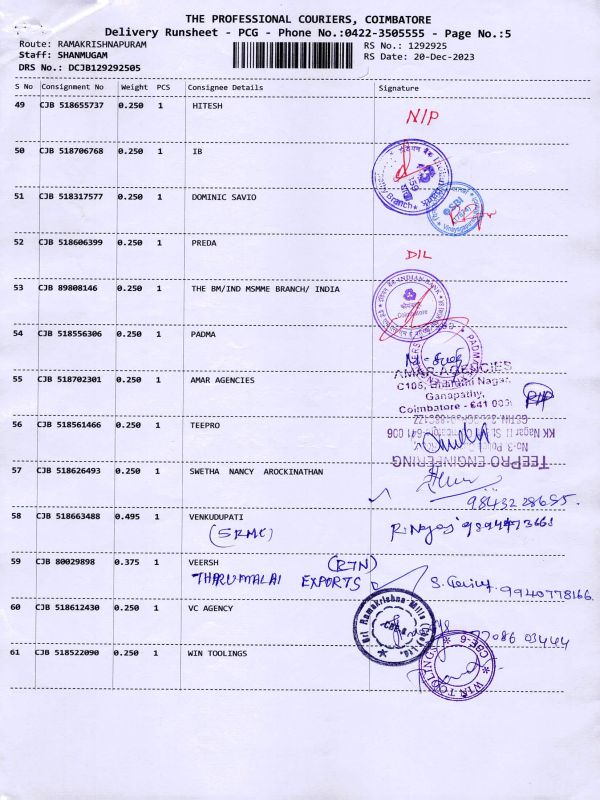 THE PROFESSIONAL COURIERS, COIMBATORE
Delivery Runsheet - PCG - Phone No.:0422-3505555 - Page No.:5
Route: RAMAKRISHNAPURAM
Staff: SHANMUGAM
DRS No.: DCJB129292505
RS No.: 1292925
RS Date: 20-Dec-2023
S No Consignment No Weight PCS Consignee Details Signature
49 CJB 518655737 0.250 1 HITESH
N/P
50 CJB 518706768 0.250 1 IB
Branch
51 CJB 518317577 0.250 1 DOMINIC SAVIO
SBI
52 CJB 518606399 0.250 1 PREDA
D/L
53 CJB 89808146 0.250 1 THE BM/IND MSMME BRANCH/ INDIA
INDIAN BANK
Coimbatore
54 CJB 518556306 0.250 1 PADMA
PADMA
55 CJB 518702301 0.250 1 AMAR AGENCIES
AMAR AGENCIES
C106, Bharathi Nagar,
Ganapathy,
Coimbatore - 641 006
56 CJB 518561466 0.250 1 TEEPRO
KK Nagar II St,
641 006
TEEPRO ENGINEERING
57 CJB 518626493 0.250 1 SWETHA NANCY AROCKINATHAN
9843228655
58 CJB 518663488 0.495 1 VENKUDUPATI
(SRMC)
59 CJB 80029898 0.375 1 VEERSH
(RTN)
THARUMALAI EXPORTS
9940778166
60 CJB 518612430 0.250 1 VC AGENCY
Sri Ramakrishna Mills
Ltd.
77086 03444
61 CJB 518522090 0.250 1 WIN TOOLINGS
WIN TOOLINGS
CBE-6